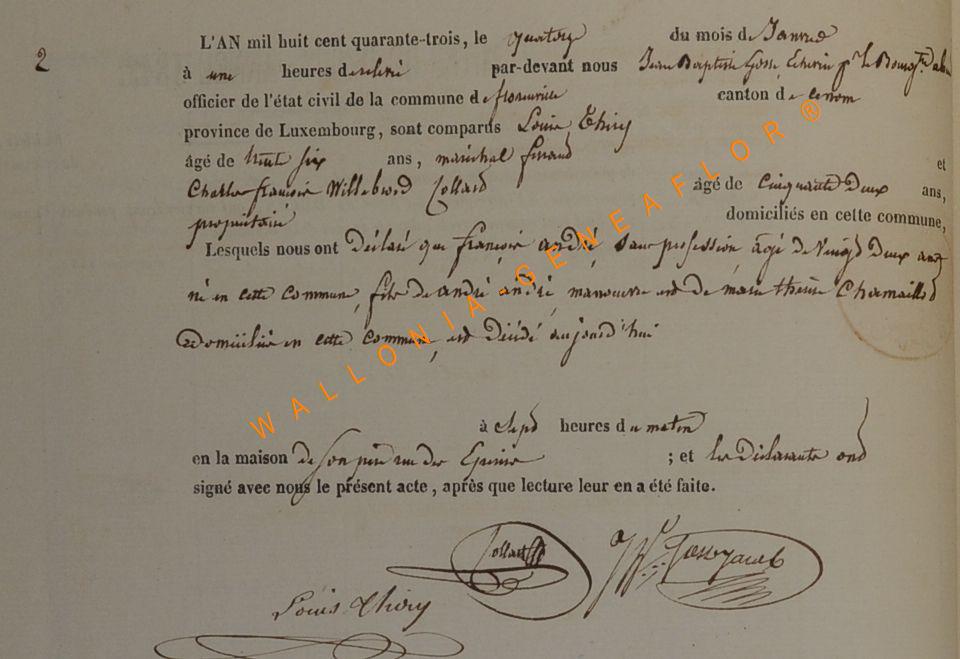 2
L'AN mil huit cent quarante-trois, le quatorze du mois de Janvier
à une heures de relevé par-devant nous Jean Baptiste Gosse, Echevin pr. le Bourgre.
officier de l'état civil de la commune de florenville canton de
province de Luxembourg, sont comparus Louis Thiry
âgé de trente six ans, maréchal ferrand et
Charles françois Willebrord Collard âgé de Cinquante Deux ans,
propriétaire domiciliés en cette commune,
Lesquels nous ont déclaré que françois andré, sans profession, âgé de Vingt Deux ans
né en cette Commune, fils de andré andré, manoeuvre et de marie thérèse Chamaillard
Domiciliés en cette Commune, est Décédé aujourd'hui
à Sept heures du matin
en la maison de Son père rue des Epiniers ; et les Déclarants ont
signé avec nous le présent acte, après que lecture leur en a été faite.
Collard
Louis Thiry
WALLONIA-GENEAFLOR ®